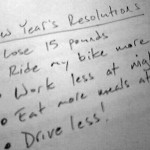 w Year's Resolutions
Lose 15 pounds
Ride my bike more
• Work less at
• Eat more meals at
• Drive less!